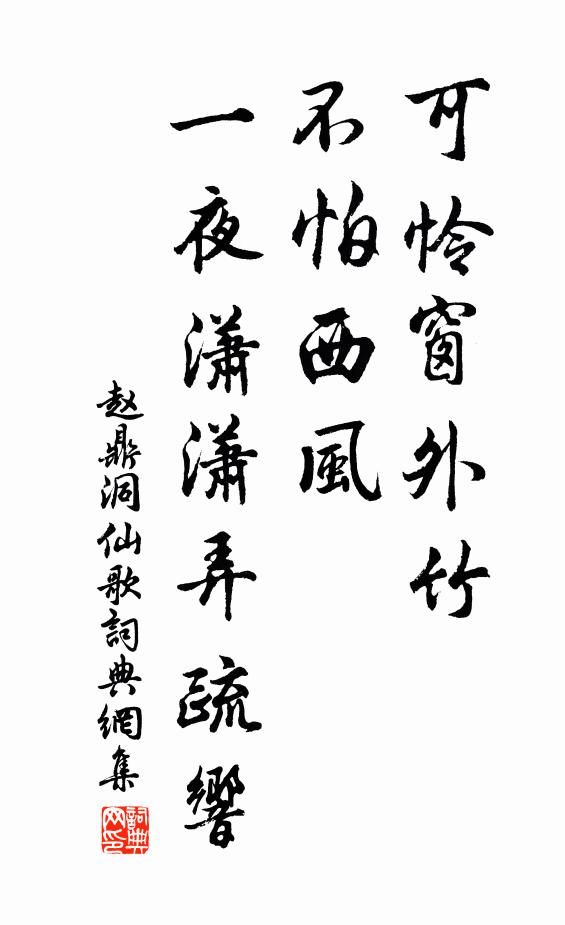 可怜窗外竹
不怕西風
一夜瀟瀟弄疏響
赵鼎洞仙歌詞典網集
詞典
网印